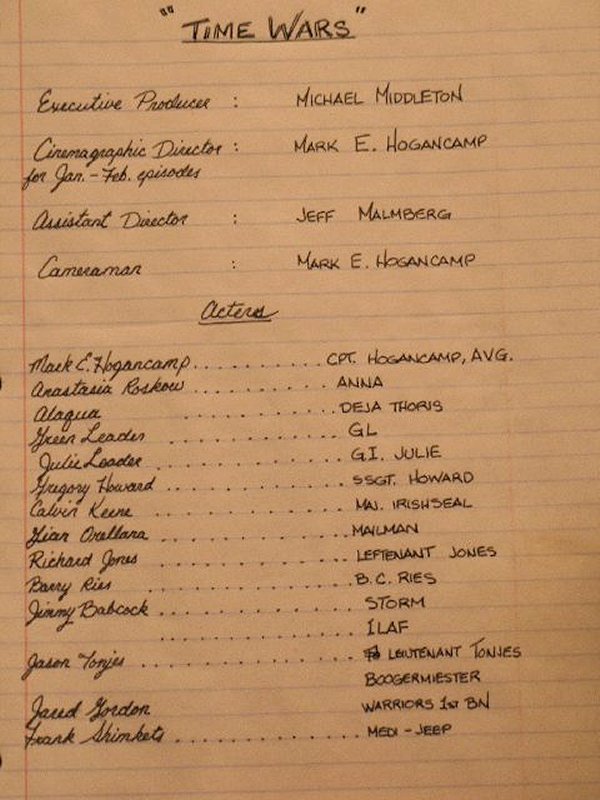 "TIME WARS"
Executive Producer : MICHAEL MIDDLETON
Cinemagraphic Director : MARK E. HOGANCAMP
for Jan.-Feb. episodes
Assistant Director : JEFF MALMBERG
Cameraman : MARK E. HOGANCAMP
Acters
Mark E. Hogancamp............CPT. HOGANCAMP, AVG.
Anastasia Roskow............ANNA
Alaqua............DEJA THORIS
Green Leader............GL
Julie Leader............G.I. JULIE
Gregory Howard............SSGT. HOWARD
Calvin Keene............MAJ. IRISHSEAL
Orellana............MAILMAN
Richard Jones............LEFTENANT JONES
Barry Ries............B.C. RIES
Jimmy Babcock............STORM
............ILAF
Jason Tonjes............LEIUTENANT TONJES
BOOGERMIESTER
Jared Gordon WARRIORS 1st BN
Frank Shimkets............MEDI-JEEP